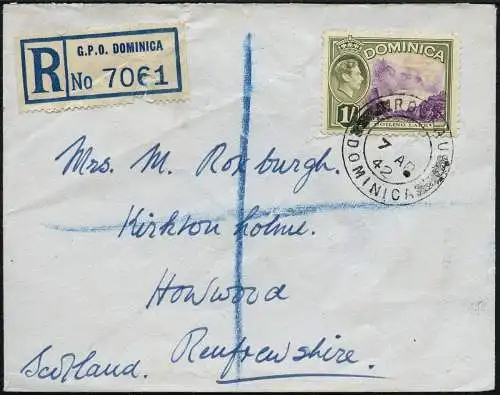 G.P.O. DOMINICA
R No 7061
DOMINICA
1/-
BOILING LAKE
7 AP
42
DOMINICA
Mrs. M. Roxburgh.
Kirkton holme.
Howwood
Renfrewshire.
Scotland.